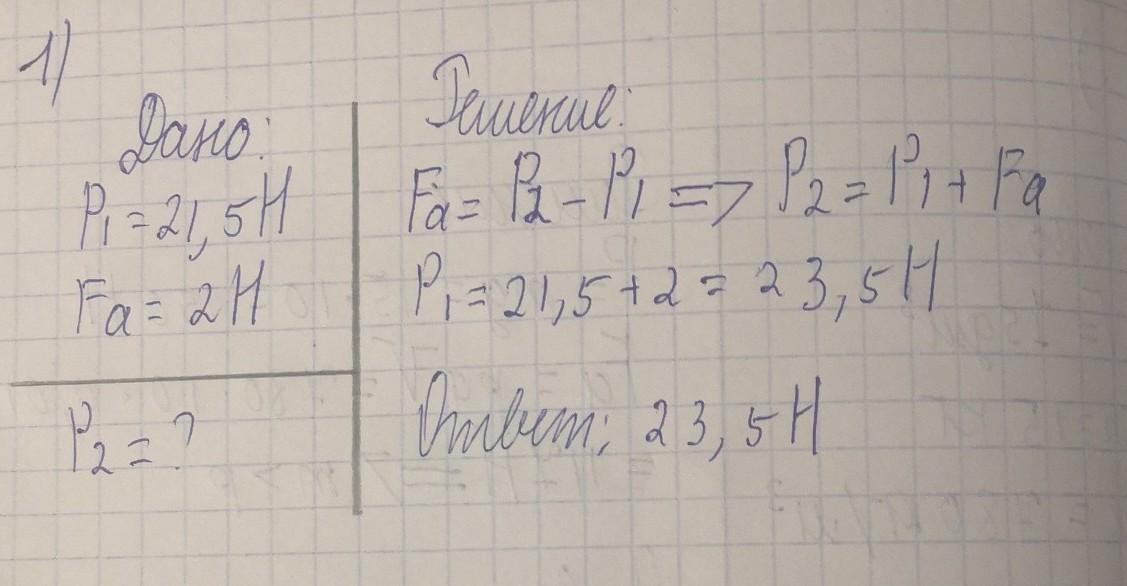 1)
Дано:
P₁ = 21,5 Н
Fₐ = 2 Н
P₂ = ?
Решение:
Fₐ = P₂ - P₁ => P₂ = P₁ + Fₐ
P₁ = 21,5 + 2 = 23,5 Н
Ответ: 23,5 Н